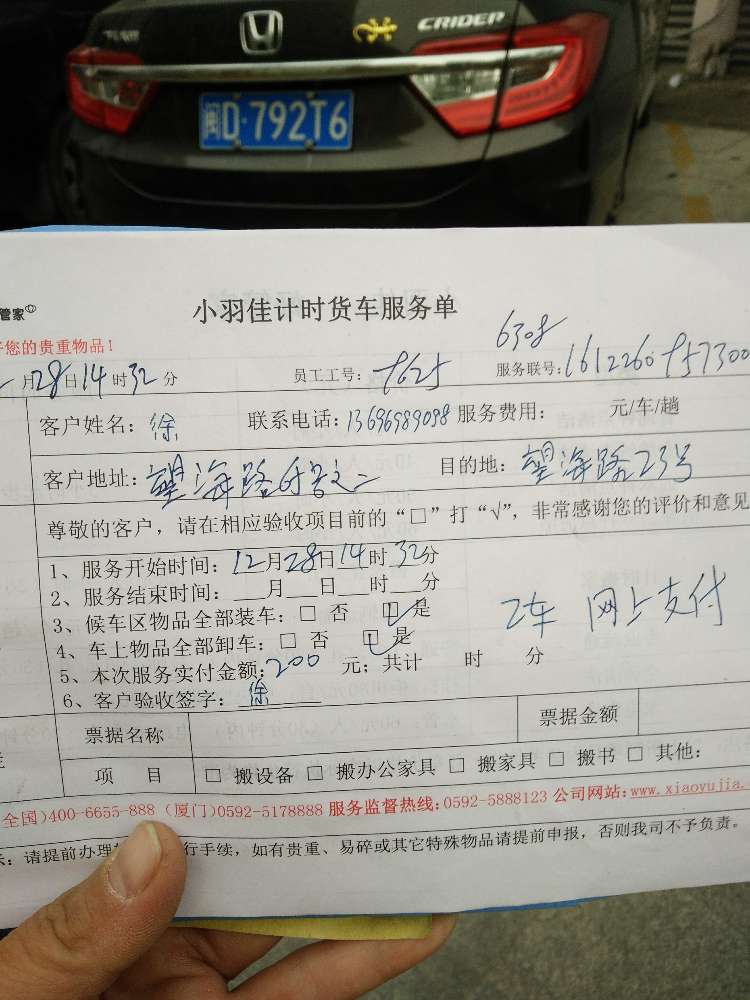 CRIDER
D·792T6
管家
小羽佳计时货车服务单
您的贵重物品!
6308
月28日14时32分 员工工号: 服务联号:
客户姓名:徐 联系电话:13696989098 服务费用: 元/车/趟
客户地址:望海路 目的地:望海路23号
尊敬的客户,请在相应验收项目前的“□”打“√”,非常感谢您的评价和意见
1、服务开始时间:12月28日14时32分
2、服务结束时间:___月___日___时___分
3、候车区物品全部装车:□ 否 □ 是
2车 网上支付
4、车上物品全部卸车:□ 否 □ 是
5、本次服务实付金额:200 元;共计 时 分
6、客户验收签字:徐
票据名称 票据金额
项 目 □ 搬设备 □ 搬办公家具 □ 搬家具 □ 搬书 □ 其他:
全国)400-6655-888(厦门)0592-5178888 服务监督热线:0592-5888123 公司网站:www.xiaoyujia.
:请提前办理 行手续,如有贵重、易碎或其它特殊物品请提前申报,否则我司不予负责。